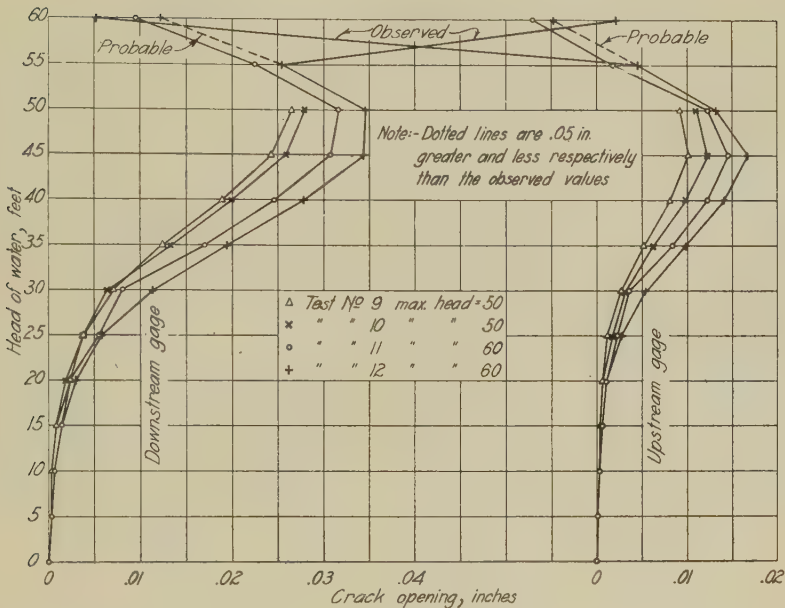 60
55
50
45
40
35
30
25
20
15
10
5
0
Head of water, feet
Probable
Observed
Probable
Note:- Dotted lines are .05 in.
greater and less respectively
than the observed values
△ Test Nº 9 max. head = 50
× " " 10 " " 50
○ " " 11 " " 60
+ " " 12 " " 60
Downstream gage
Upstream gage
0 .01 .02 .03 .04 0 .01 .02
Crack opening, inches